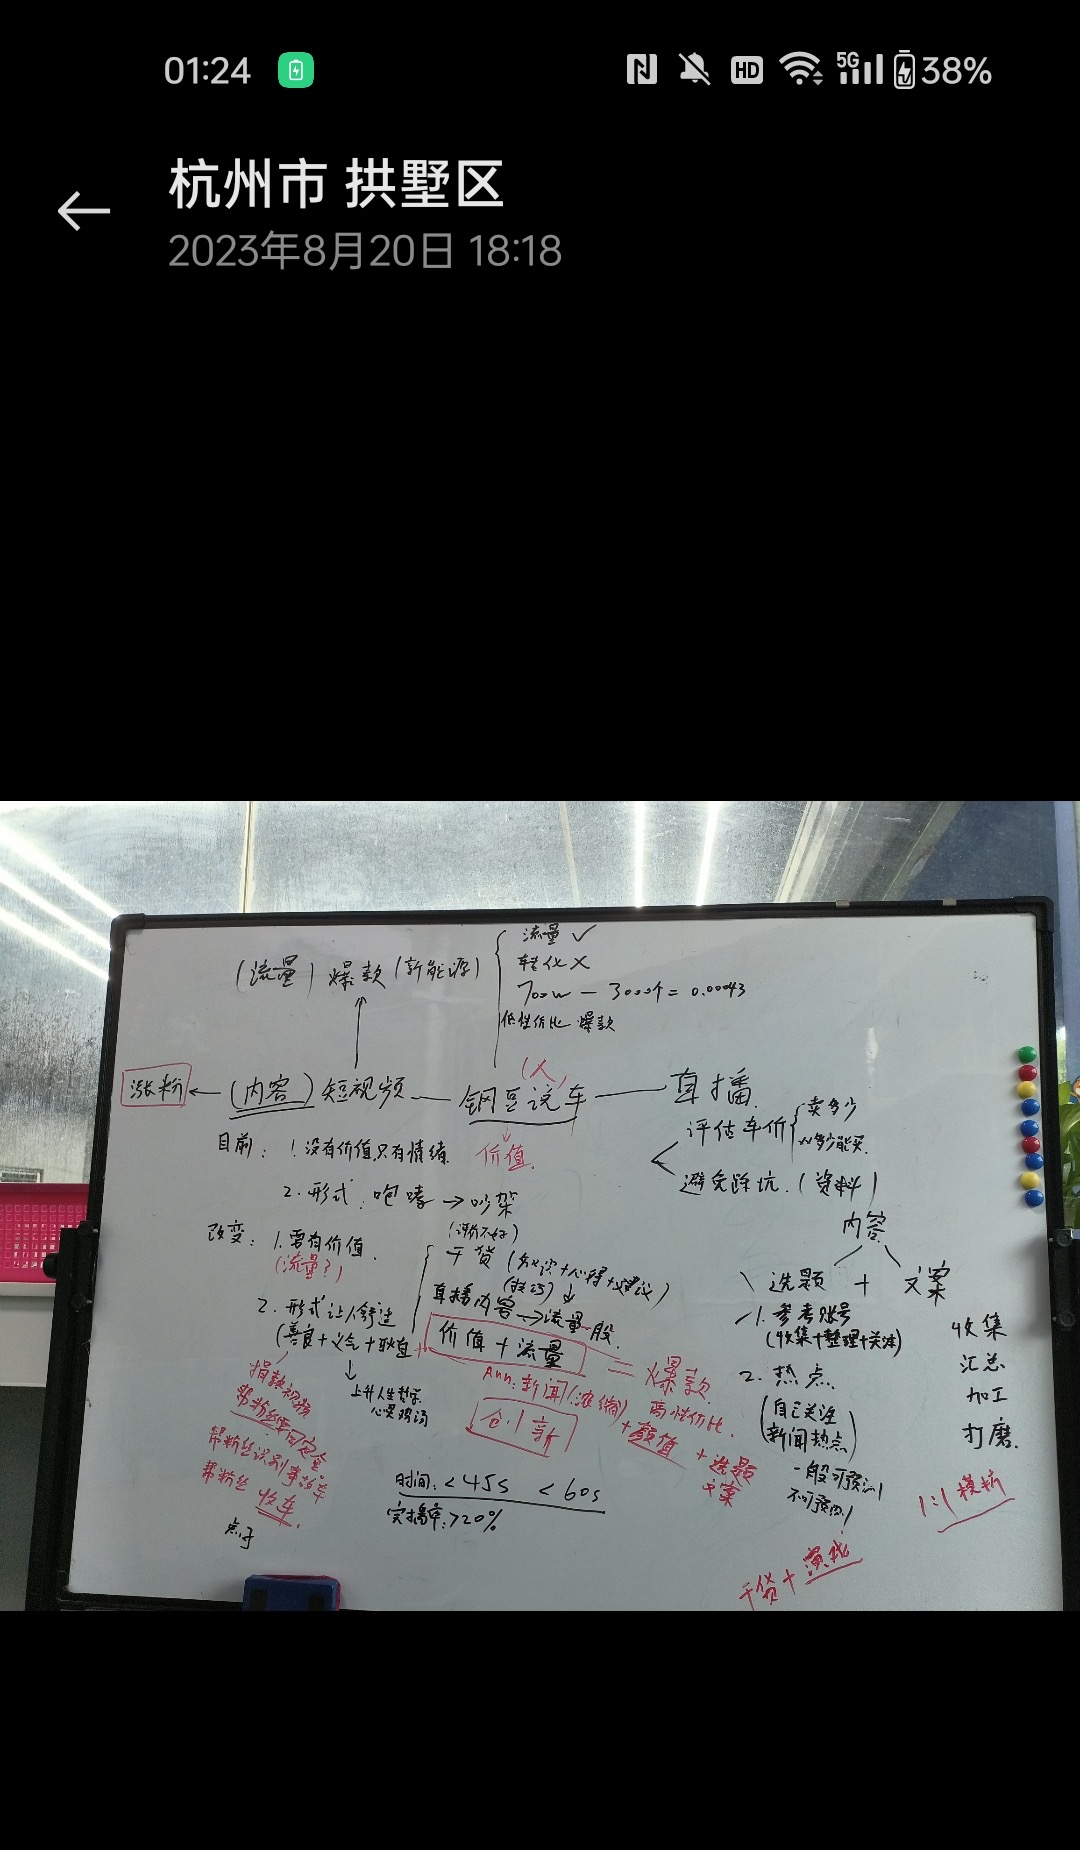 01:24
HD
5G
38%
杭州市 拱墅区
2023年8月20日 18:18
流量 ✓
转化 ×
700w — 3000个 = 0.00043
低性价比 爆款
(流量) 爆款 (新能源)
(人)
涨粉 ← (内容) 短视频 — 钢豆说车 — 直播
价值
评估车价 { 卖多少
多少能买
避免踩坑. (资料)
目前: 1. 没有价值,只有情绪
2. 形式: 咆哮 → 吵架
改变: 1. 需有价值.
(流量?)
2. 形式让人舒适
(善良+义气+耿直
上升人生哲学
心灵鸡汤
干货 (知识+心得+建议)
(技巧)
直播内容 → 流量一般.
价值 + 流量 = 爆款
Ann: 新闻 (浓缩) 高性价比.
创新
+ 颜值 + 选题
文案
捐款视频
帮粉丝识别事故车
帮粉丝 收车.
点子
时间: < 45s < 60s
完播率: >20%
内容
选题 + 文案
1. 参考账号
(收集+整理+关注)
2. 热点.
(自己关注
新闻热点)
一般可预测
不可预测
收集
汇总
加工
打磨.
1:1 模拆
干货 + 演戏